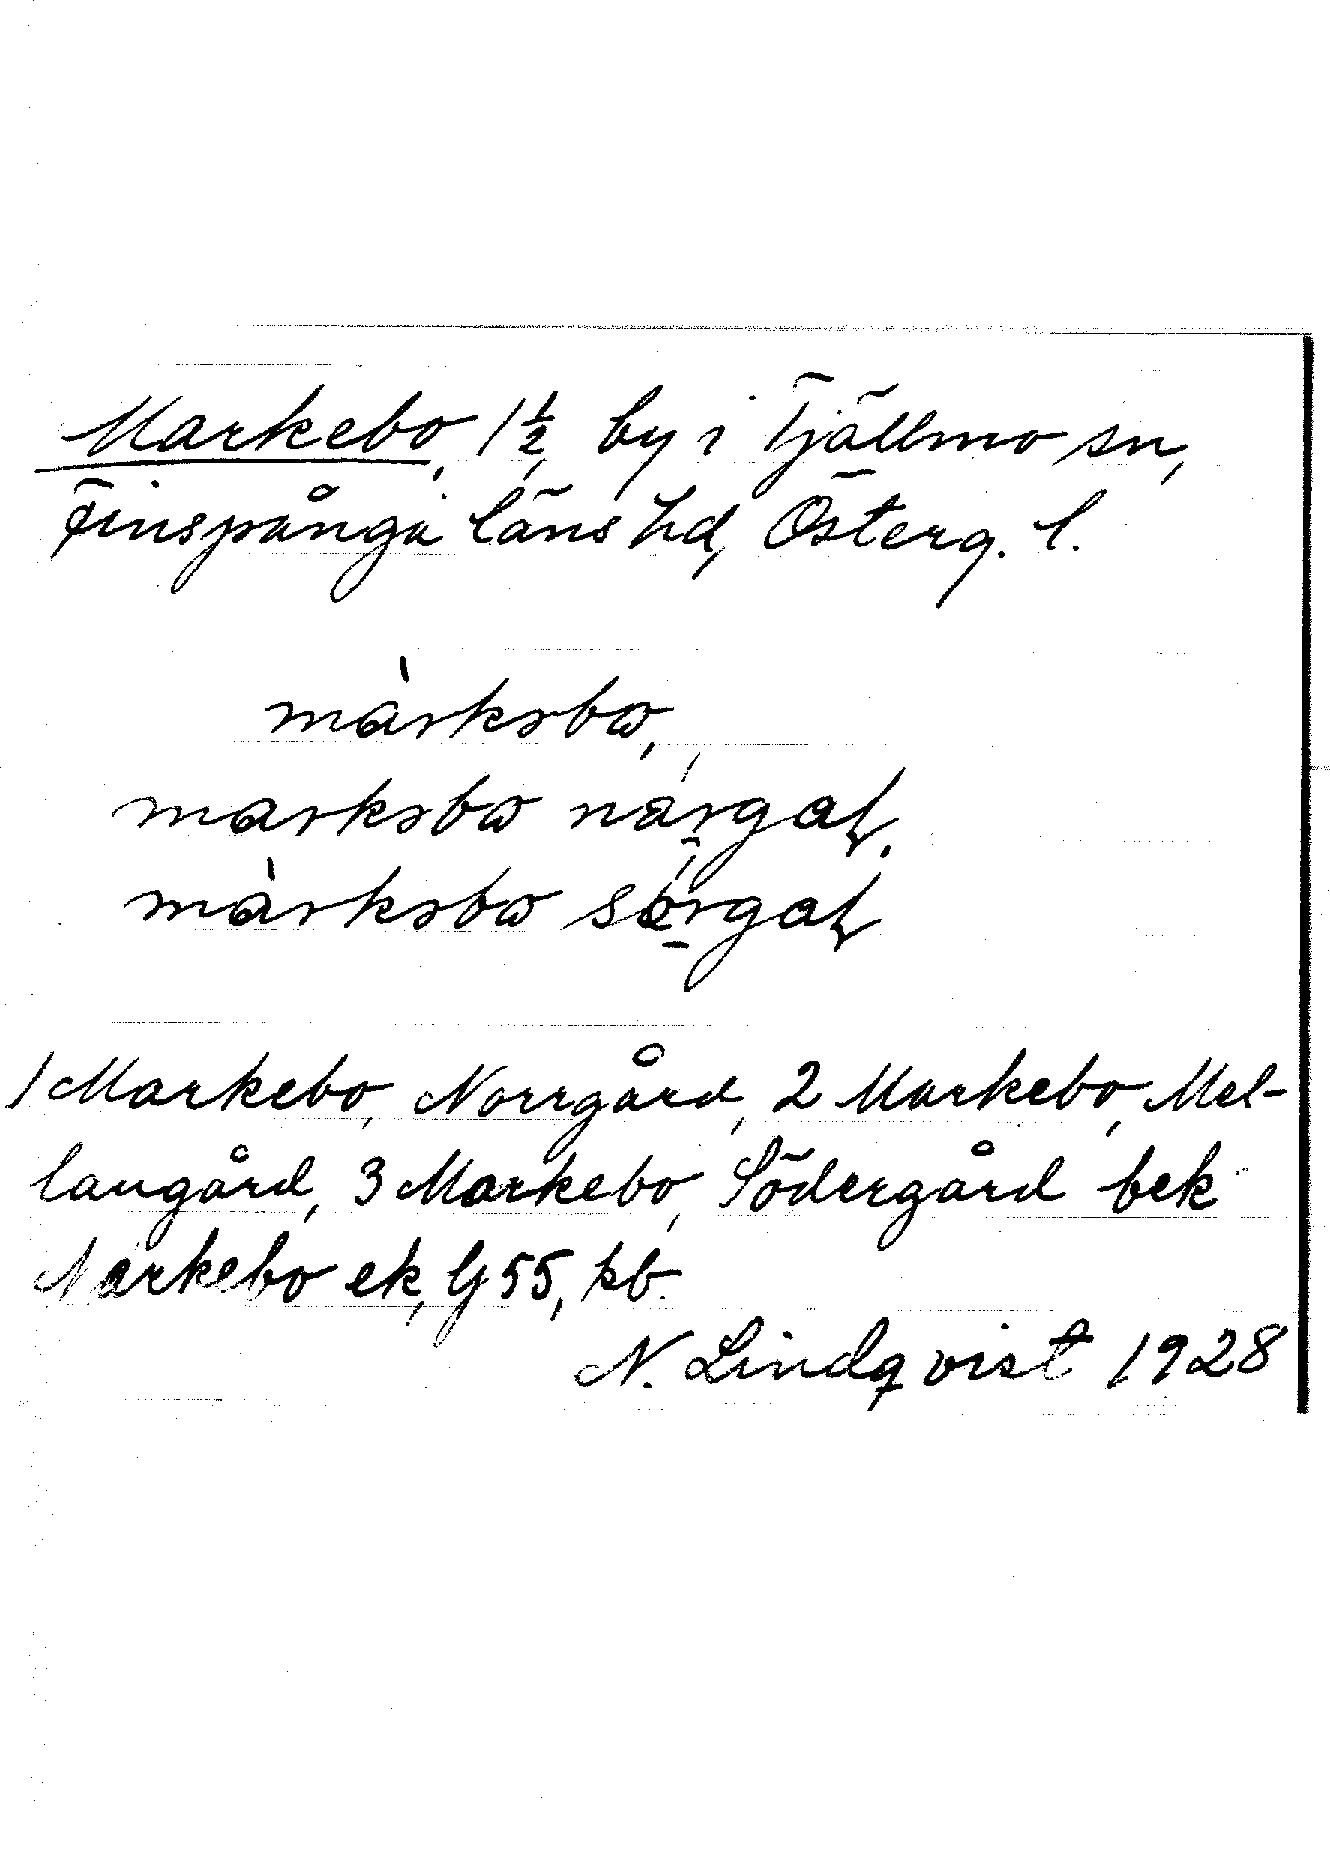 Markebo, 1 1/2, by i Tjällmo sn,
Finspånga läns hd, Österg. l.
màrkəbω,
markəbω nárgaɭ,
màrkəbω sǿrgaɭ
1 Markebo, Norrgård, 2 Markebo, Mel-
langård, 3 Markebo, Södergård bek
Markebo ek, G 55, kb.
N. Lindqvist 1928